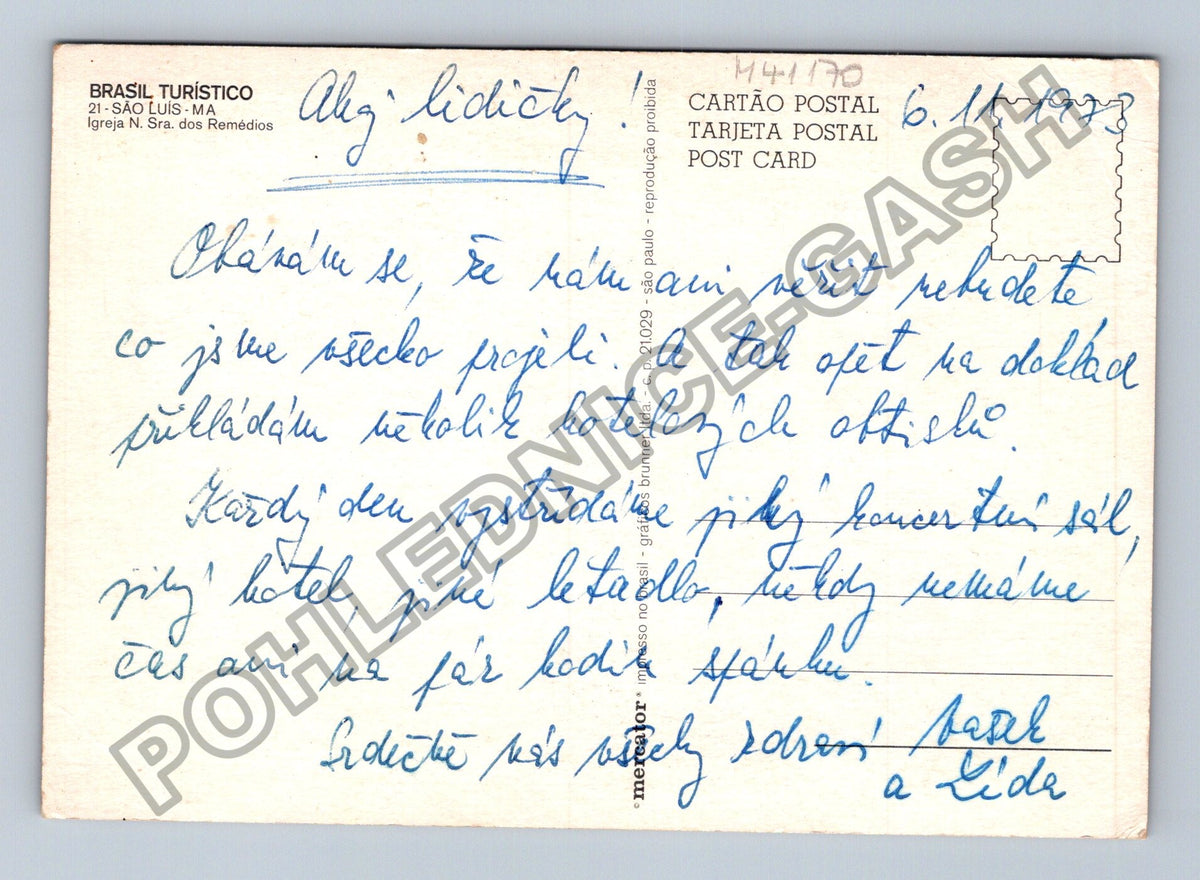 BRASIL TURÍSTICO
21 - SÃO LUÍS - MA
Igreja N. Sra. dos Remédios
M41170
CARTÃO POSTAL
TARJETA POSTAL
POST CARD
6. 11. 1973
Ahoj lidičky!
Obávám se, že nám ani věřit nebudete
co jsme všecko projeli. A tak opět na doklad
přikládám několik hotelových obtisků.
Každý den vystřídáme jiný koncertní sál,
jiný hotel, jiné letadlo, někdy nemáme
čas ani na pár hodin spánku.
Srdečně vás všecky zdraví Vašek
a Lída
mercator® impresso no brasil - gráficos brunner ltda. - c. p. 21.029 - são paulo - reprodução proibida
POHLEDNICE-GASH